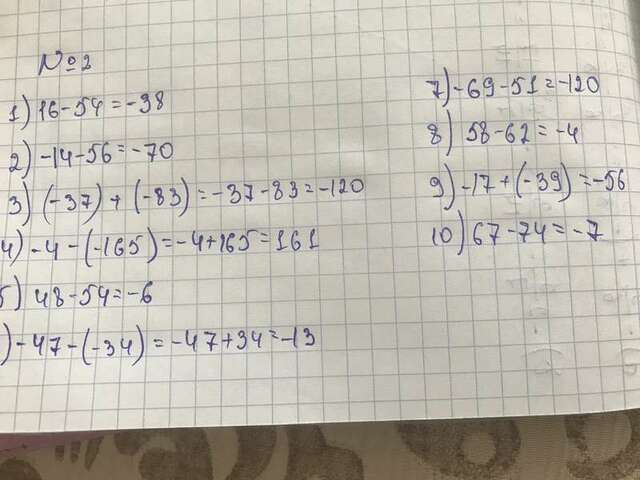 №2
1) 16-54=-38
2) -14-56=-70
3) (-37)+(-83)=-37-83=-120
4) -4-(-165)=-4+165=161
5) 48-54=-6
) -47-(-34)=-47+34=-13
7) -69-51=-120
8) 58-62=-4
9) -17+(-39)=-56
10) 67-74=-7